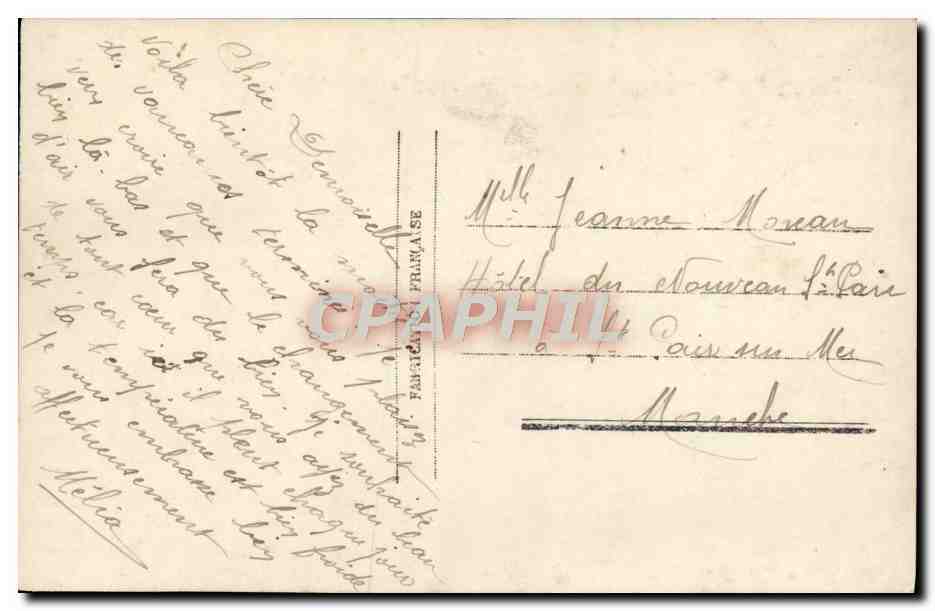 Chère Demoiselle
Voilà bientôt la moitié
des vacances terminé vous plaisez
vous croire que nous
bien là-bas et que le changement
d'air vous fera du bien. Je souhaite
de tout cœur que vous ayez du beau
temps car ici il pleut chaque jour
et la température est bien froide
Je vous embrasse bien
affectueusement
Mélia
FABRICATION FRANÇAISE
Mlle Jeanne Moreau
Hôtel du Nouveau St Pair
à St Pair sur Mer
Manche
CPAPHIL